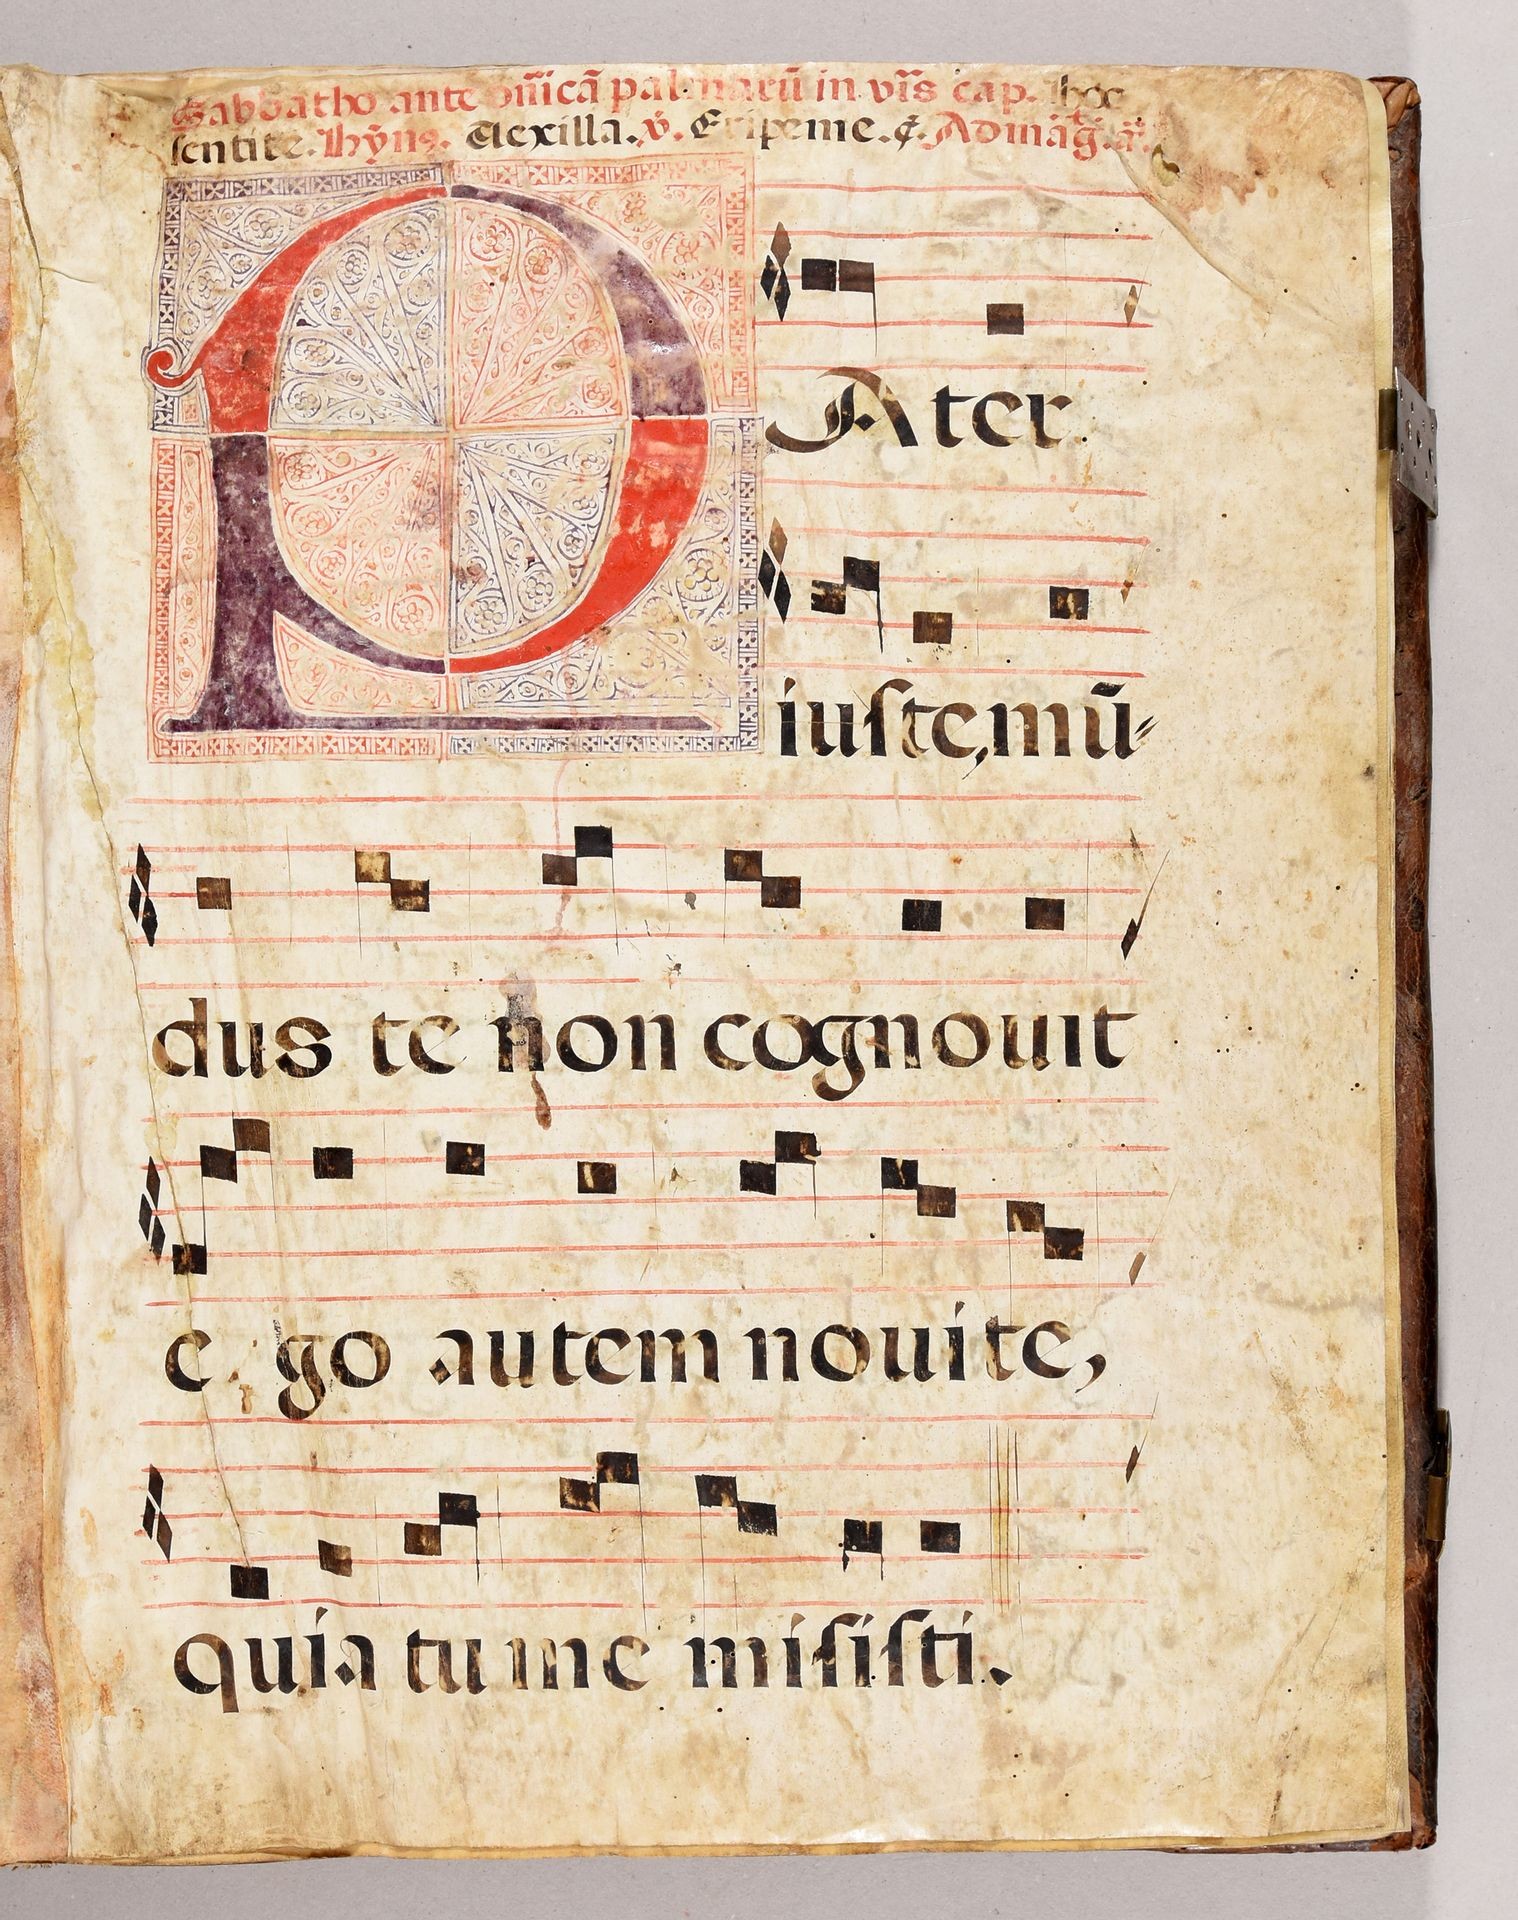 Sabbatho ante dñicã palmarũ in vr̃is cap. hoc
sentite. hỹns. Vexilla. v̊. Eripe me. ꝯ. Ad mãg̃. ã.
PAter
iuste, mũ-
dus te non cognouit
e go autem noui te,
quia tu me misisti.